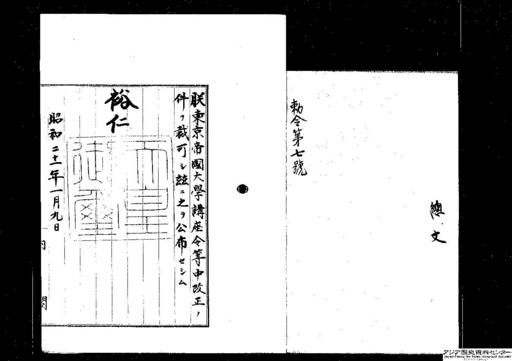 勅令第七號
總、文
朕東京帝國大學講座令等中改正ノ
件ヲ裁可シ茲ニ之ヲ公布セシム
裕仁
天皇
御璽
昭和二十一年一月九日
内閣
アジア歴史資料センター